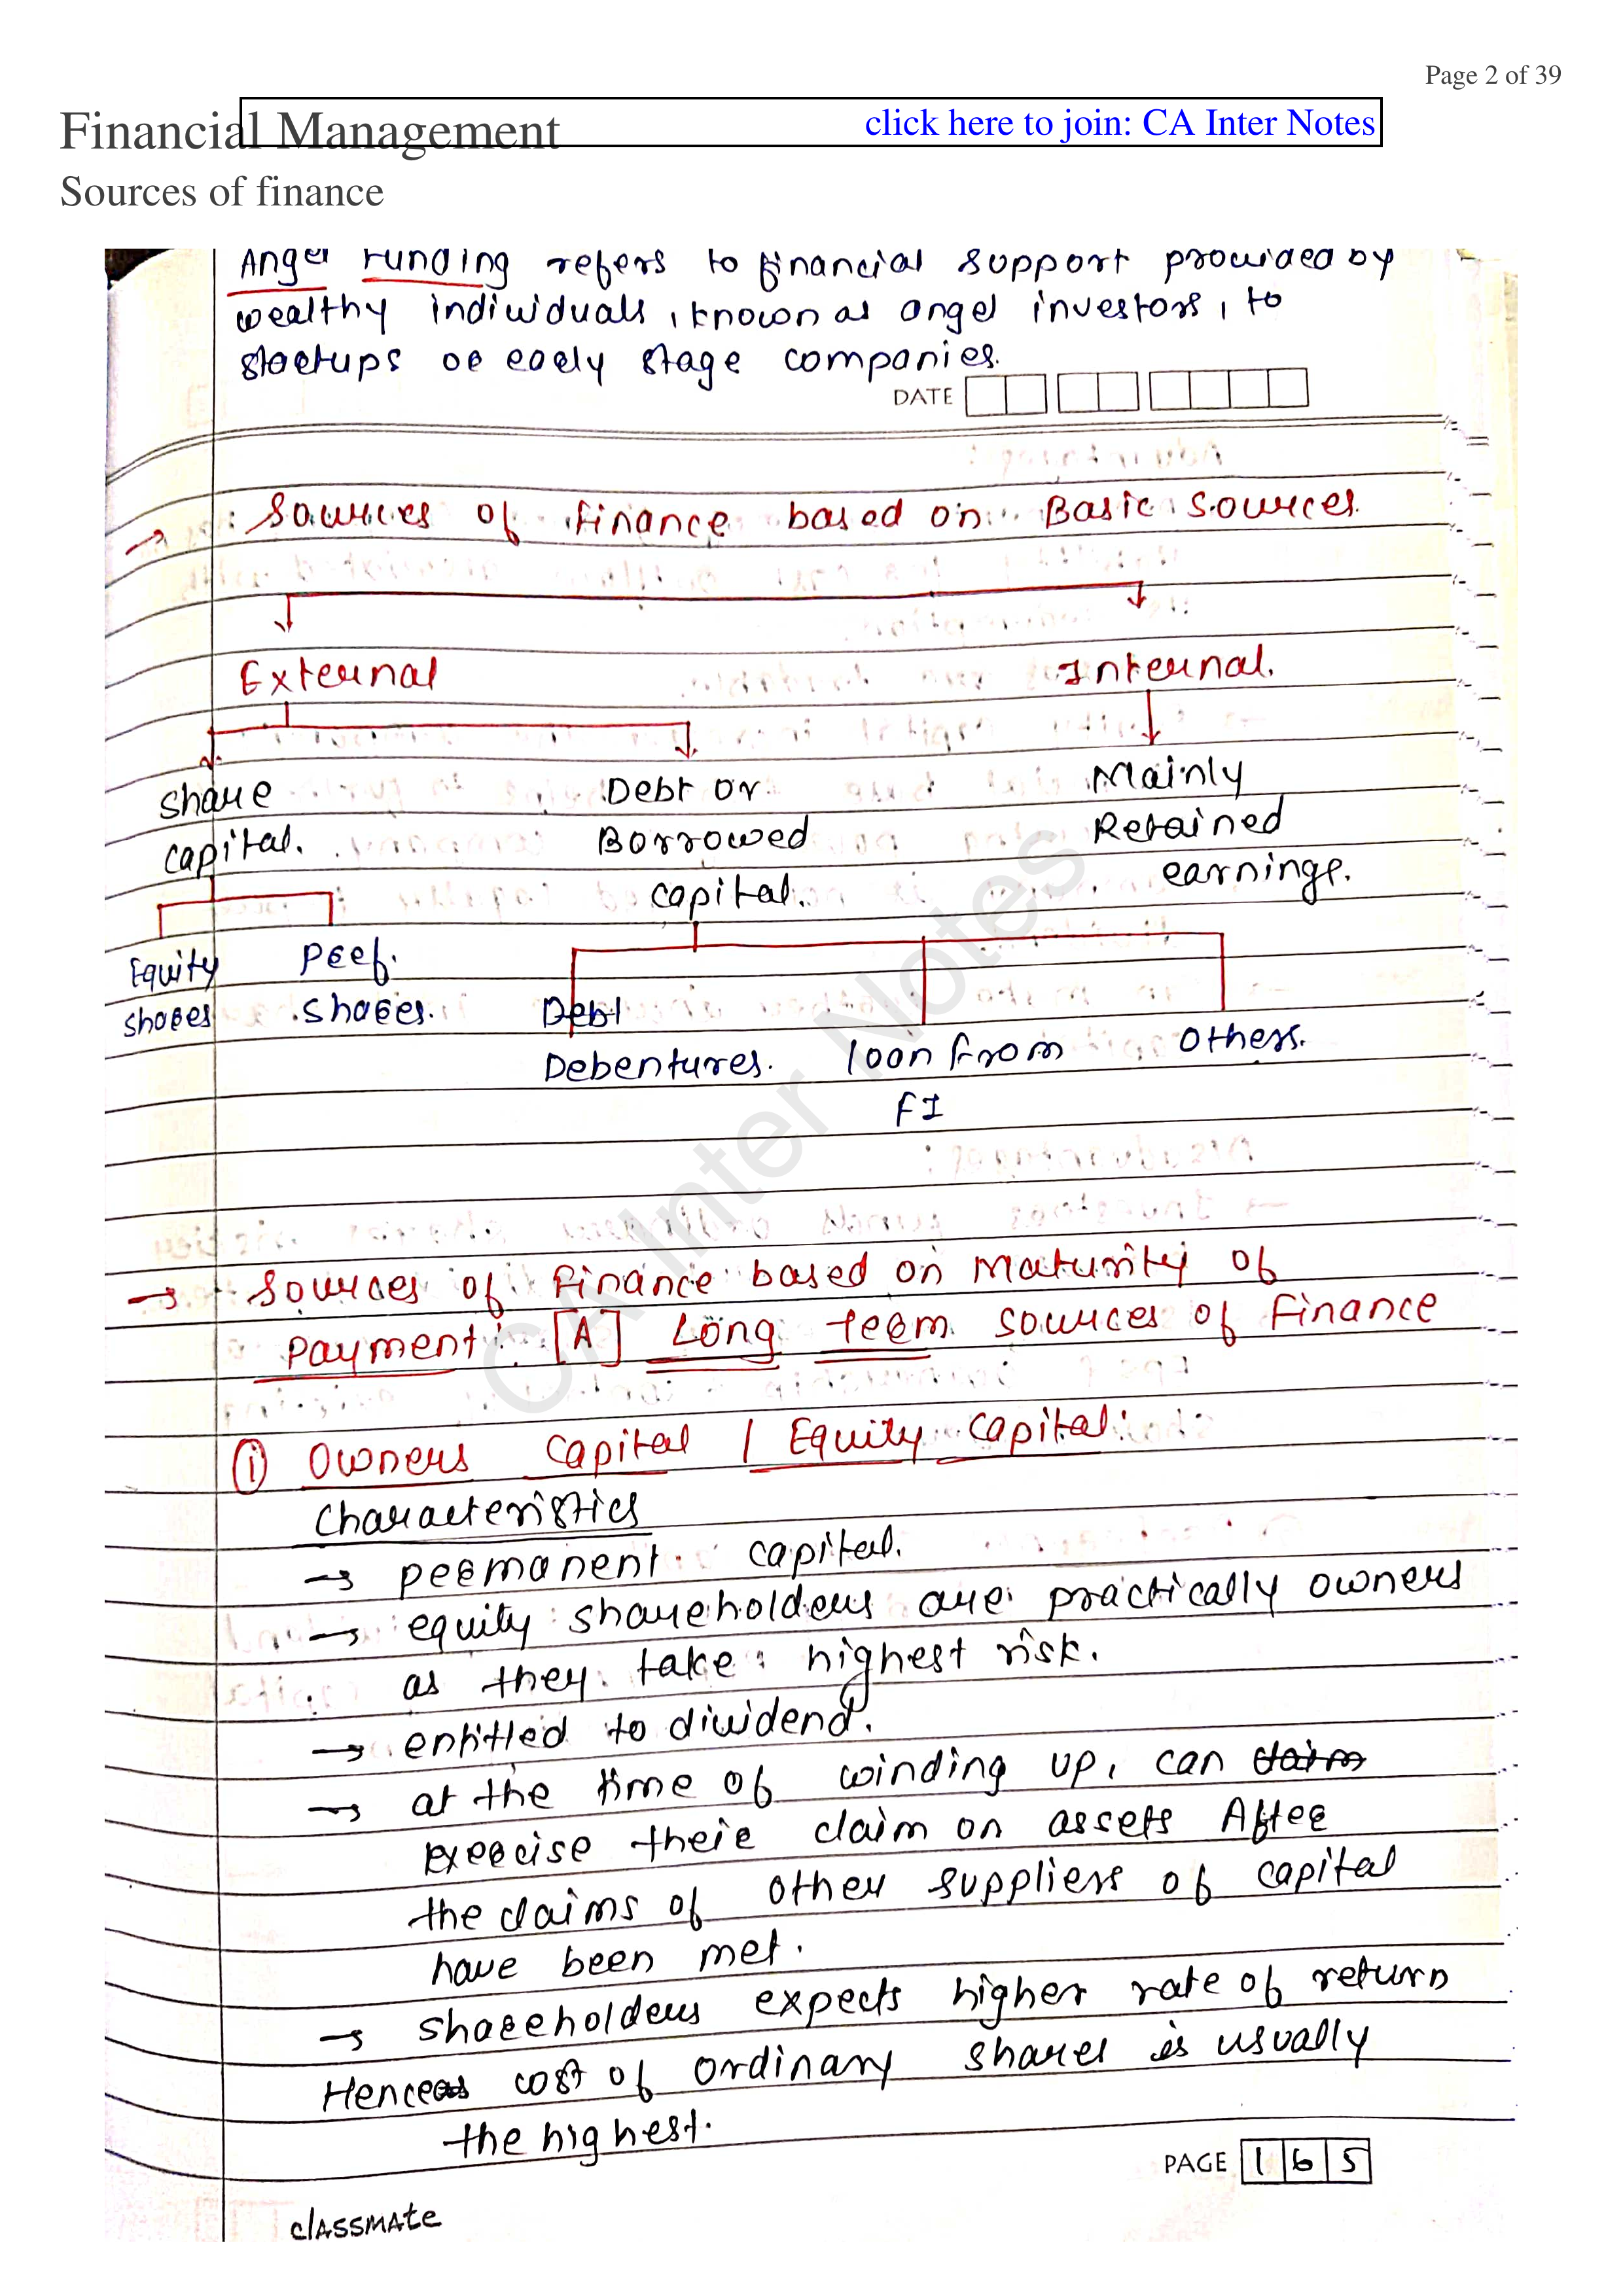 Page 2 of 39
Financial Management
click here to join: CA Inter Notes
Sources of finance
Angel Funding refers to financial support provided by
wealthy individuals, known as angel investors, to
startups or early stage companies.
DATE
→ Sources of finance based on Basic sources.
External Internal.
share Debt or Mainly
capital. Borrowed Retained
capital. earnings.
Equity Pref.
shares shares. Debt
Debentures. loan from others.
FI
→ Sources of finance based on Maturity of
payment: [A] Long term sources of Finance
① Owners capital / Equity capital:
Characteristics
→ permanent capital.
→ equity shareholders are practically owners
as they take highest risk.
→ entitled to dividend.
→ at the time of winding up, can claim
exercise their claim on assets After
the claims of other suppliers of capital
have been met.
→ shareholders expects higher rate of return
Hence cost of ordinary shares is usually
the highest.
PAGE 165
classmate
CA Inter Notes